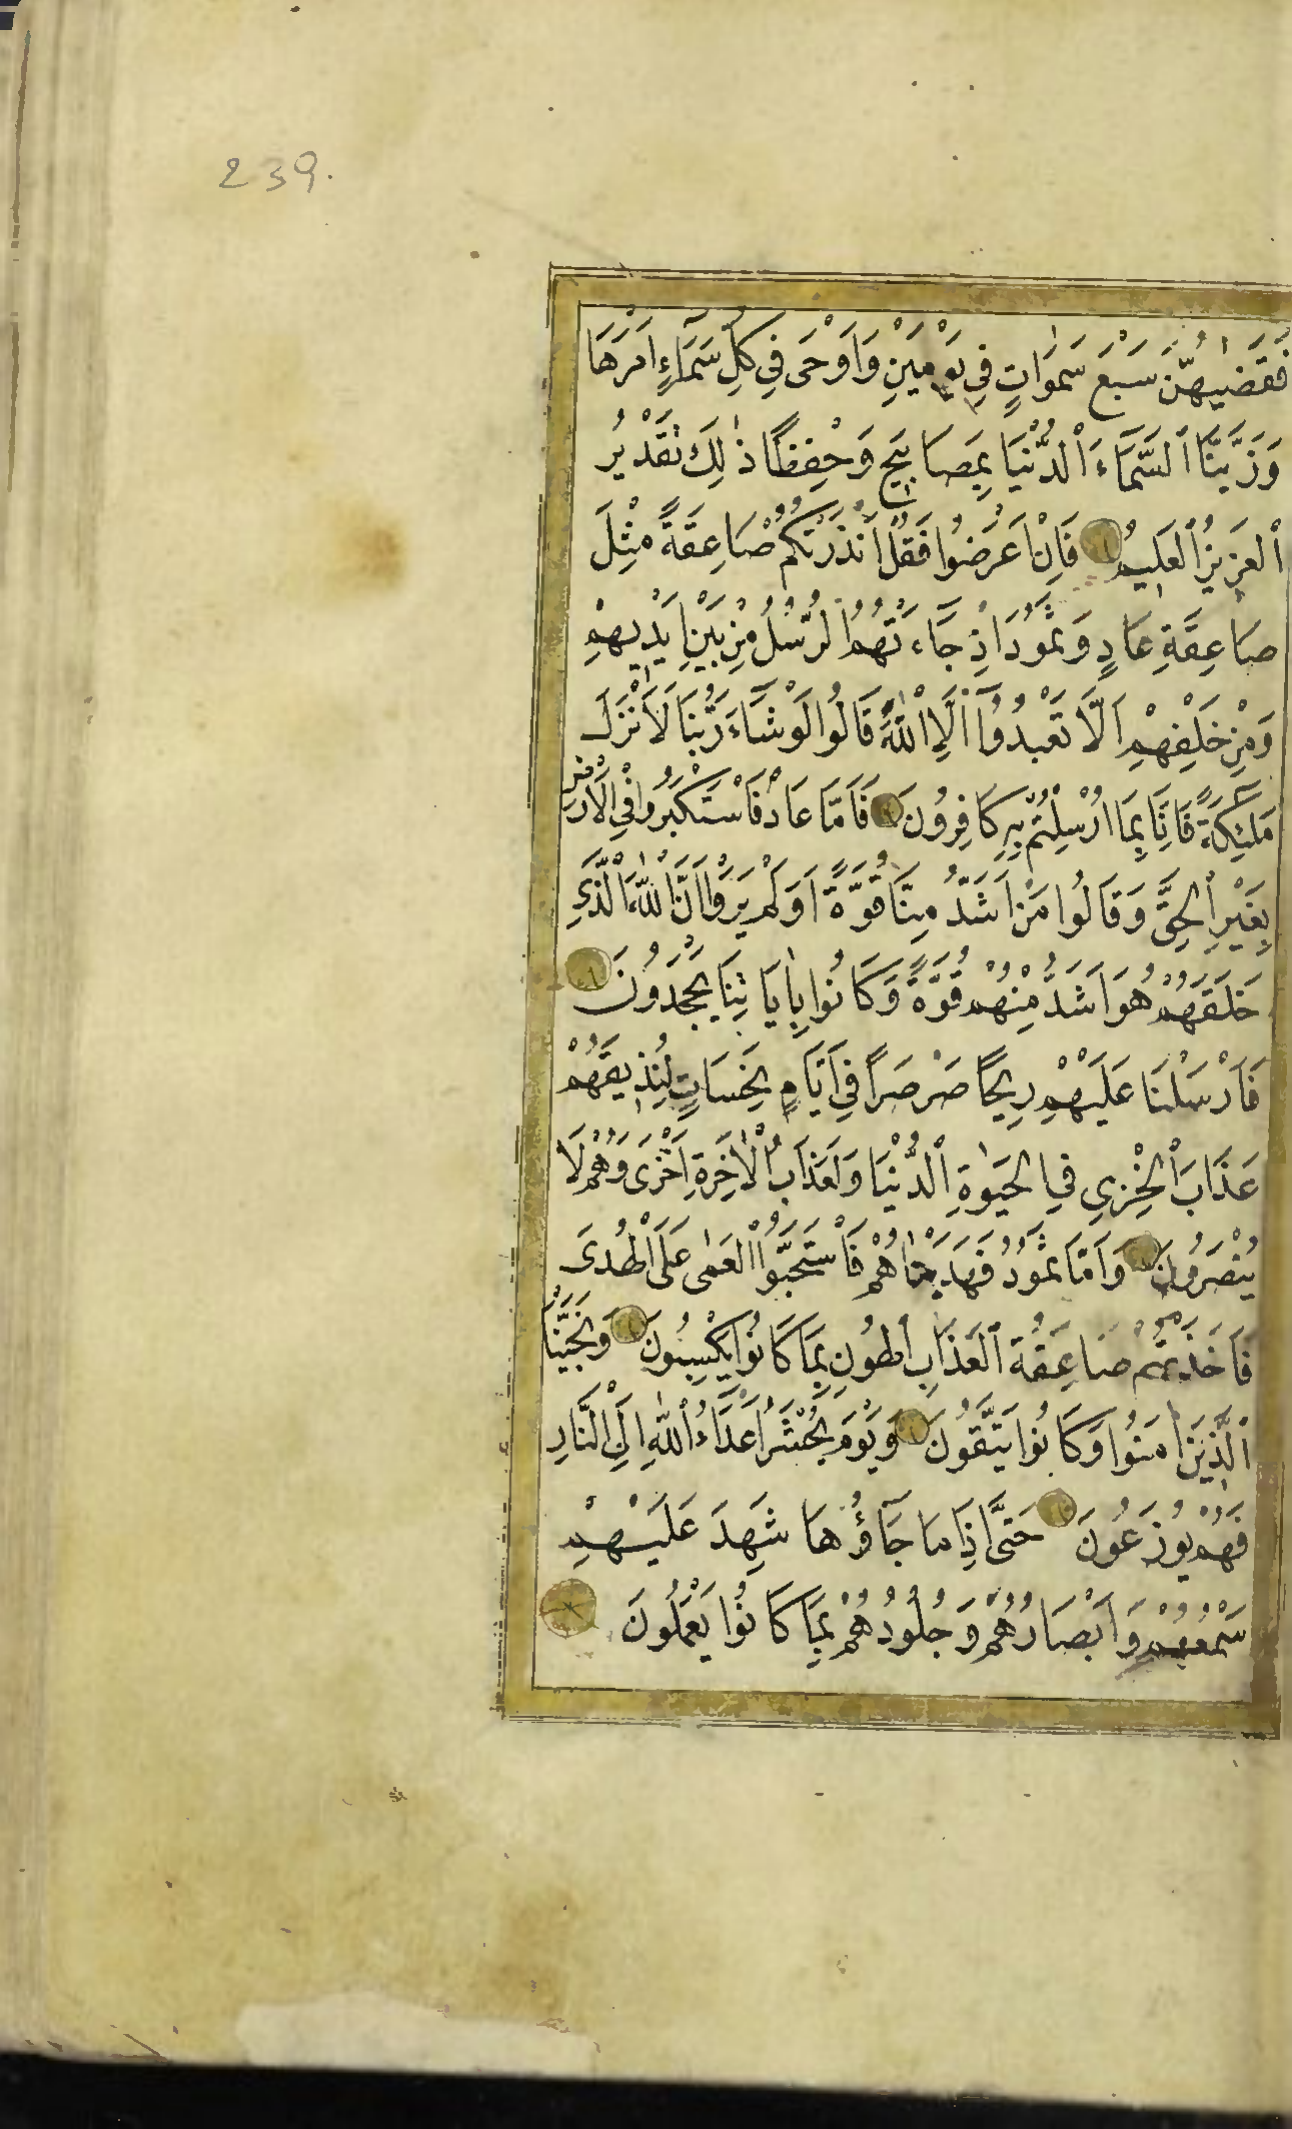 239.
فَقَضٰيهُنَّ سَبْعَ سَمٰوَاتٍ فِي يَوْمَيْنِ وَاَوْحٰى فِي كُلِّ سَمَاءٍ اَمْرَهَا
وَزَيَّنَّا السَّمَاءَ الدُّنْيَا بِمَصَابِيحَ وَحِفْظًا ذٰلِكَ تَقْدِيرُ
الْعَزِيزِ الْعَلِيمِ فَاِنْ اَعْرَضُوا فَقُلْ اَنْذَرْتُكُمْ صَاعِقَةً مِثْلَ
صَاعِقَةِ عَادٍ وَثَمُودَ اِذْ جَاءَتْهُمُ الرُّسُلُ مِنْ بَيْنِ اَيْدِيهِمْ
وَمِنْ خَلْفِهِمْ اَلَّا تَعْبُدُوا اِلَّا اللّٰهَ قَالُوا لَوْ شَاءَ رَبُّنَا لَاَنْزَلَ
مَلٰئِكَةً فَاِنَّا بِمَا اُرْسِلْتُمْ بِهِ كَافِرُونَ فَاَمَّا عَادٌ فَاسْتَكْبَرُوا فِي الْاَرْضِ
بِغَيْرِ الْحَقِّ وَقَالُوا مَنْ اَشَدُّ مِنَّا قُوَّةً اَوَلَمْ يَرَوْا اَنَّ اللّٰهَ الَّذِي
خَلَقَهُمْ هُوَ اَشَدُّ مِنْهُمْ قُوَّةً وَكَانُوا بِاٰيَاتِنَا يَجْحَدُونَ
فَاَرْسَلْنَا عَلَيْهِمْ رِيحًا صَرْصَرًا فِي اَيَّامٍ نَحِسَاتٍ لِنُذِيقَهُمْ
عَذَابَ الْخِزْيِ فِي الْحَيٰوةِ الدُّنْيَا وَلَعَذَابُ الْاٰخِرَةِ اَخْزٰى وَهُمْ لَا
يُنْصَرُونَ وَاَمَّا ثَمُودُ فَهَدَيْنَاهُمْ فَاسْتَحَبُّوا الْعَمٰى عَلَى الْهُدٰى
فَاَخَذَتْهُمْ صَاعِقَةُ الْعَذَابِ الْهُونِ بِمَا كَانُوا يَكْسِبُونَ وَنَجَّيْنَا
الَّذِينَ اٰمَنُوا وَكَانُوا يَتَّقُونَ وَيَوْمَ يُحْشَرُ اَعْدَاءُ اللّٰهِ اِلَى النَّارِ
فَهُمْ يُوزَعُونَ حَتّٰى اِذَا مَا جَاؤُهَا شَهِدَ عَلَيْهِمْ
سَمْعُهُمْ وَاَبْصَارُهُمْ وَجُلُودُهُمْ بِمَا كَانُوا يَعْمَلُونَ